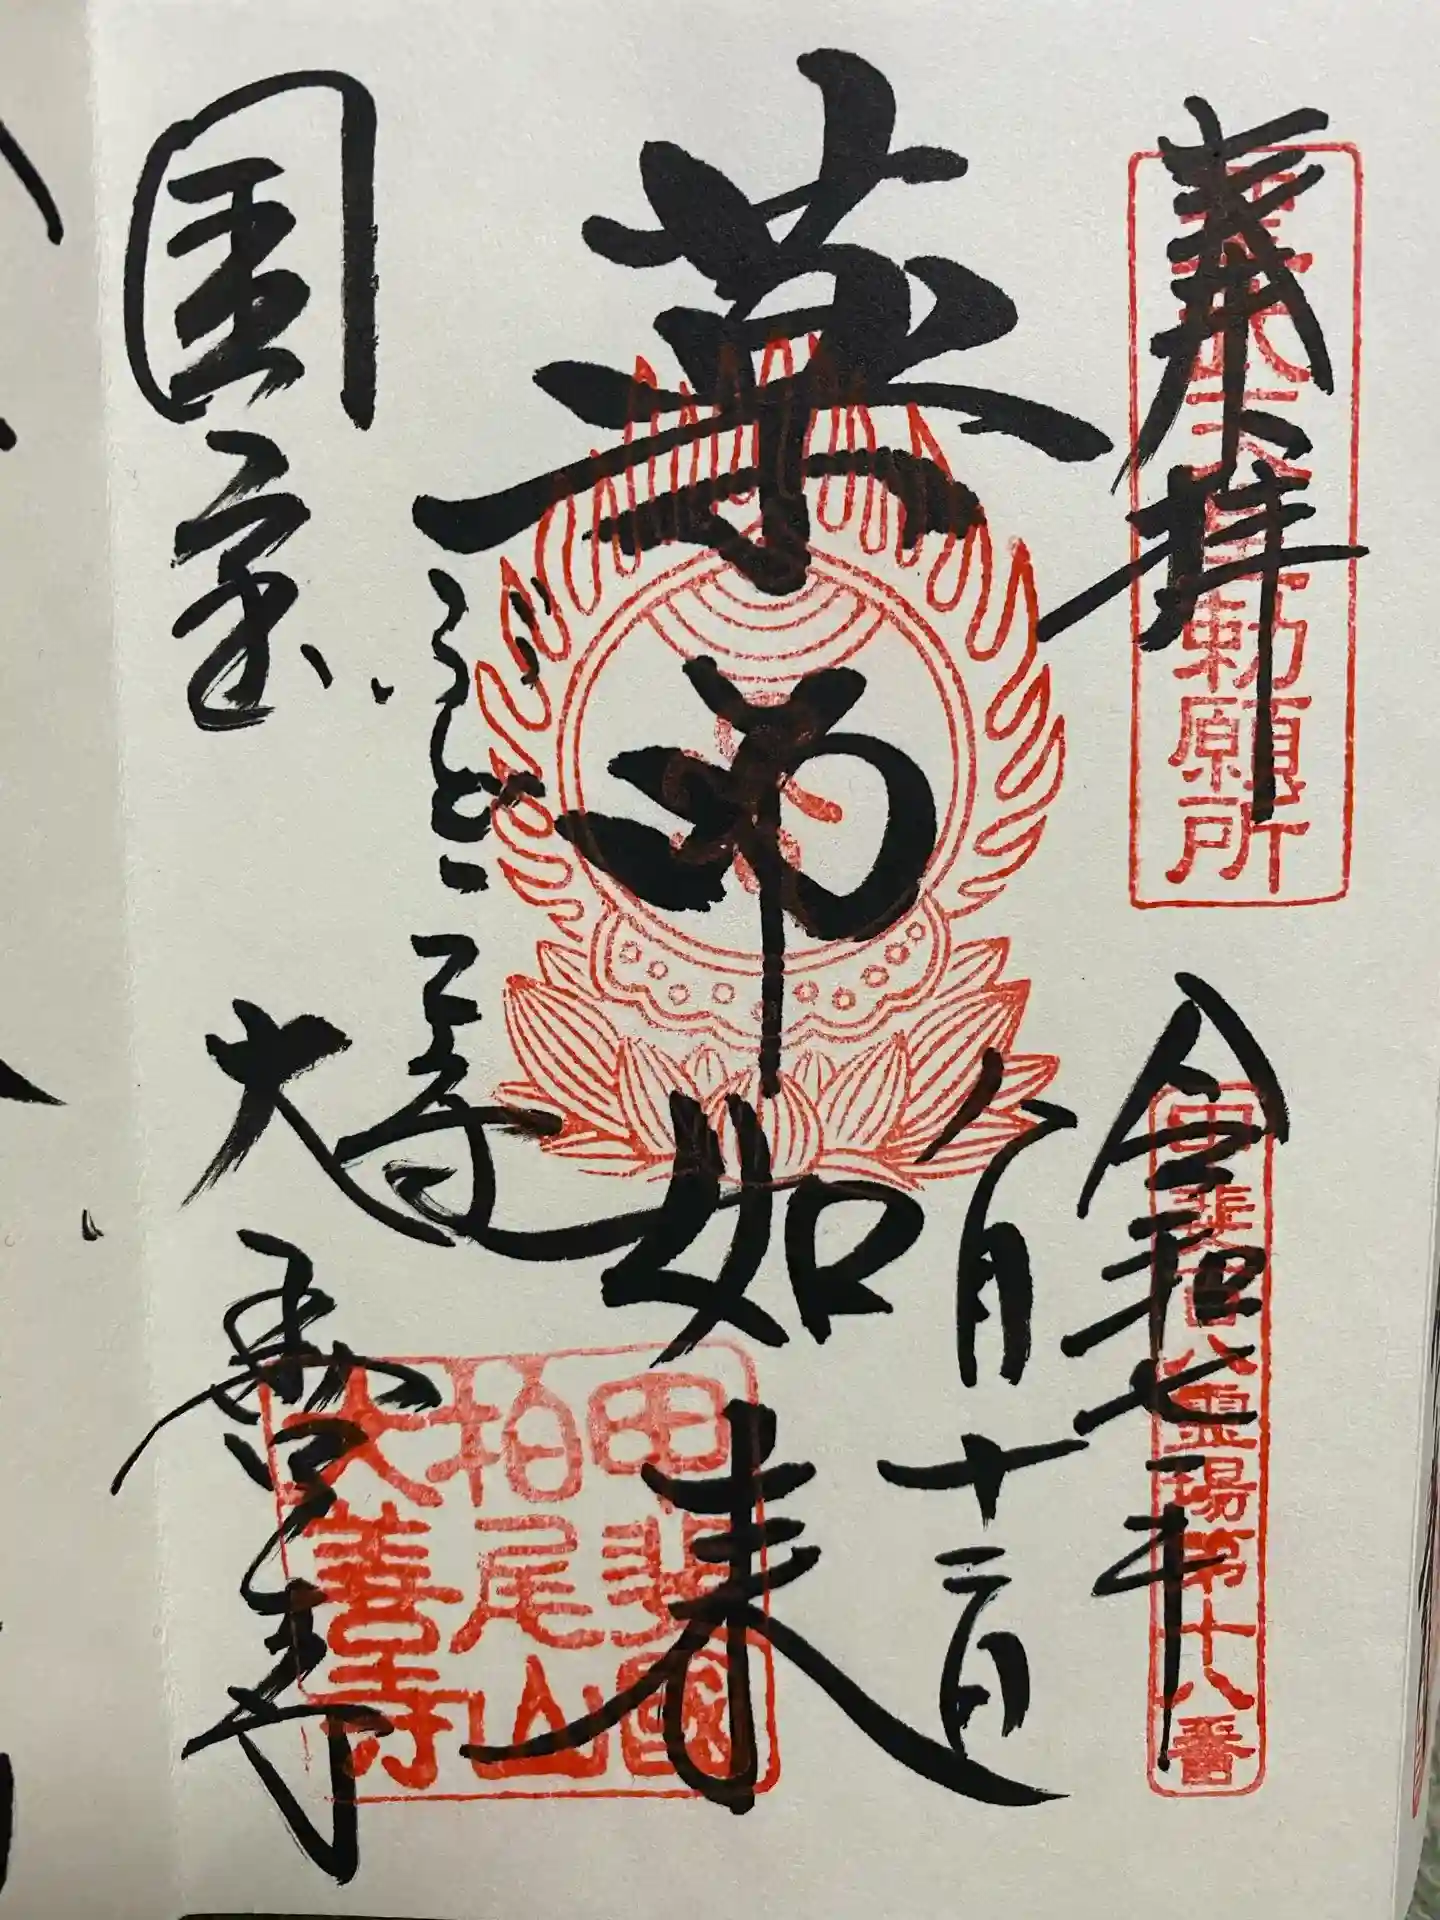 奉拝
聖武天皇勅願所
令和七年
甲斐百八霊場第十八番
八月十二日
薬師如来
ぶどう寺
国宝
大善寺
甲斐國
柏尾山
大善寺